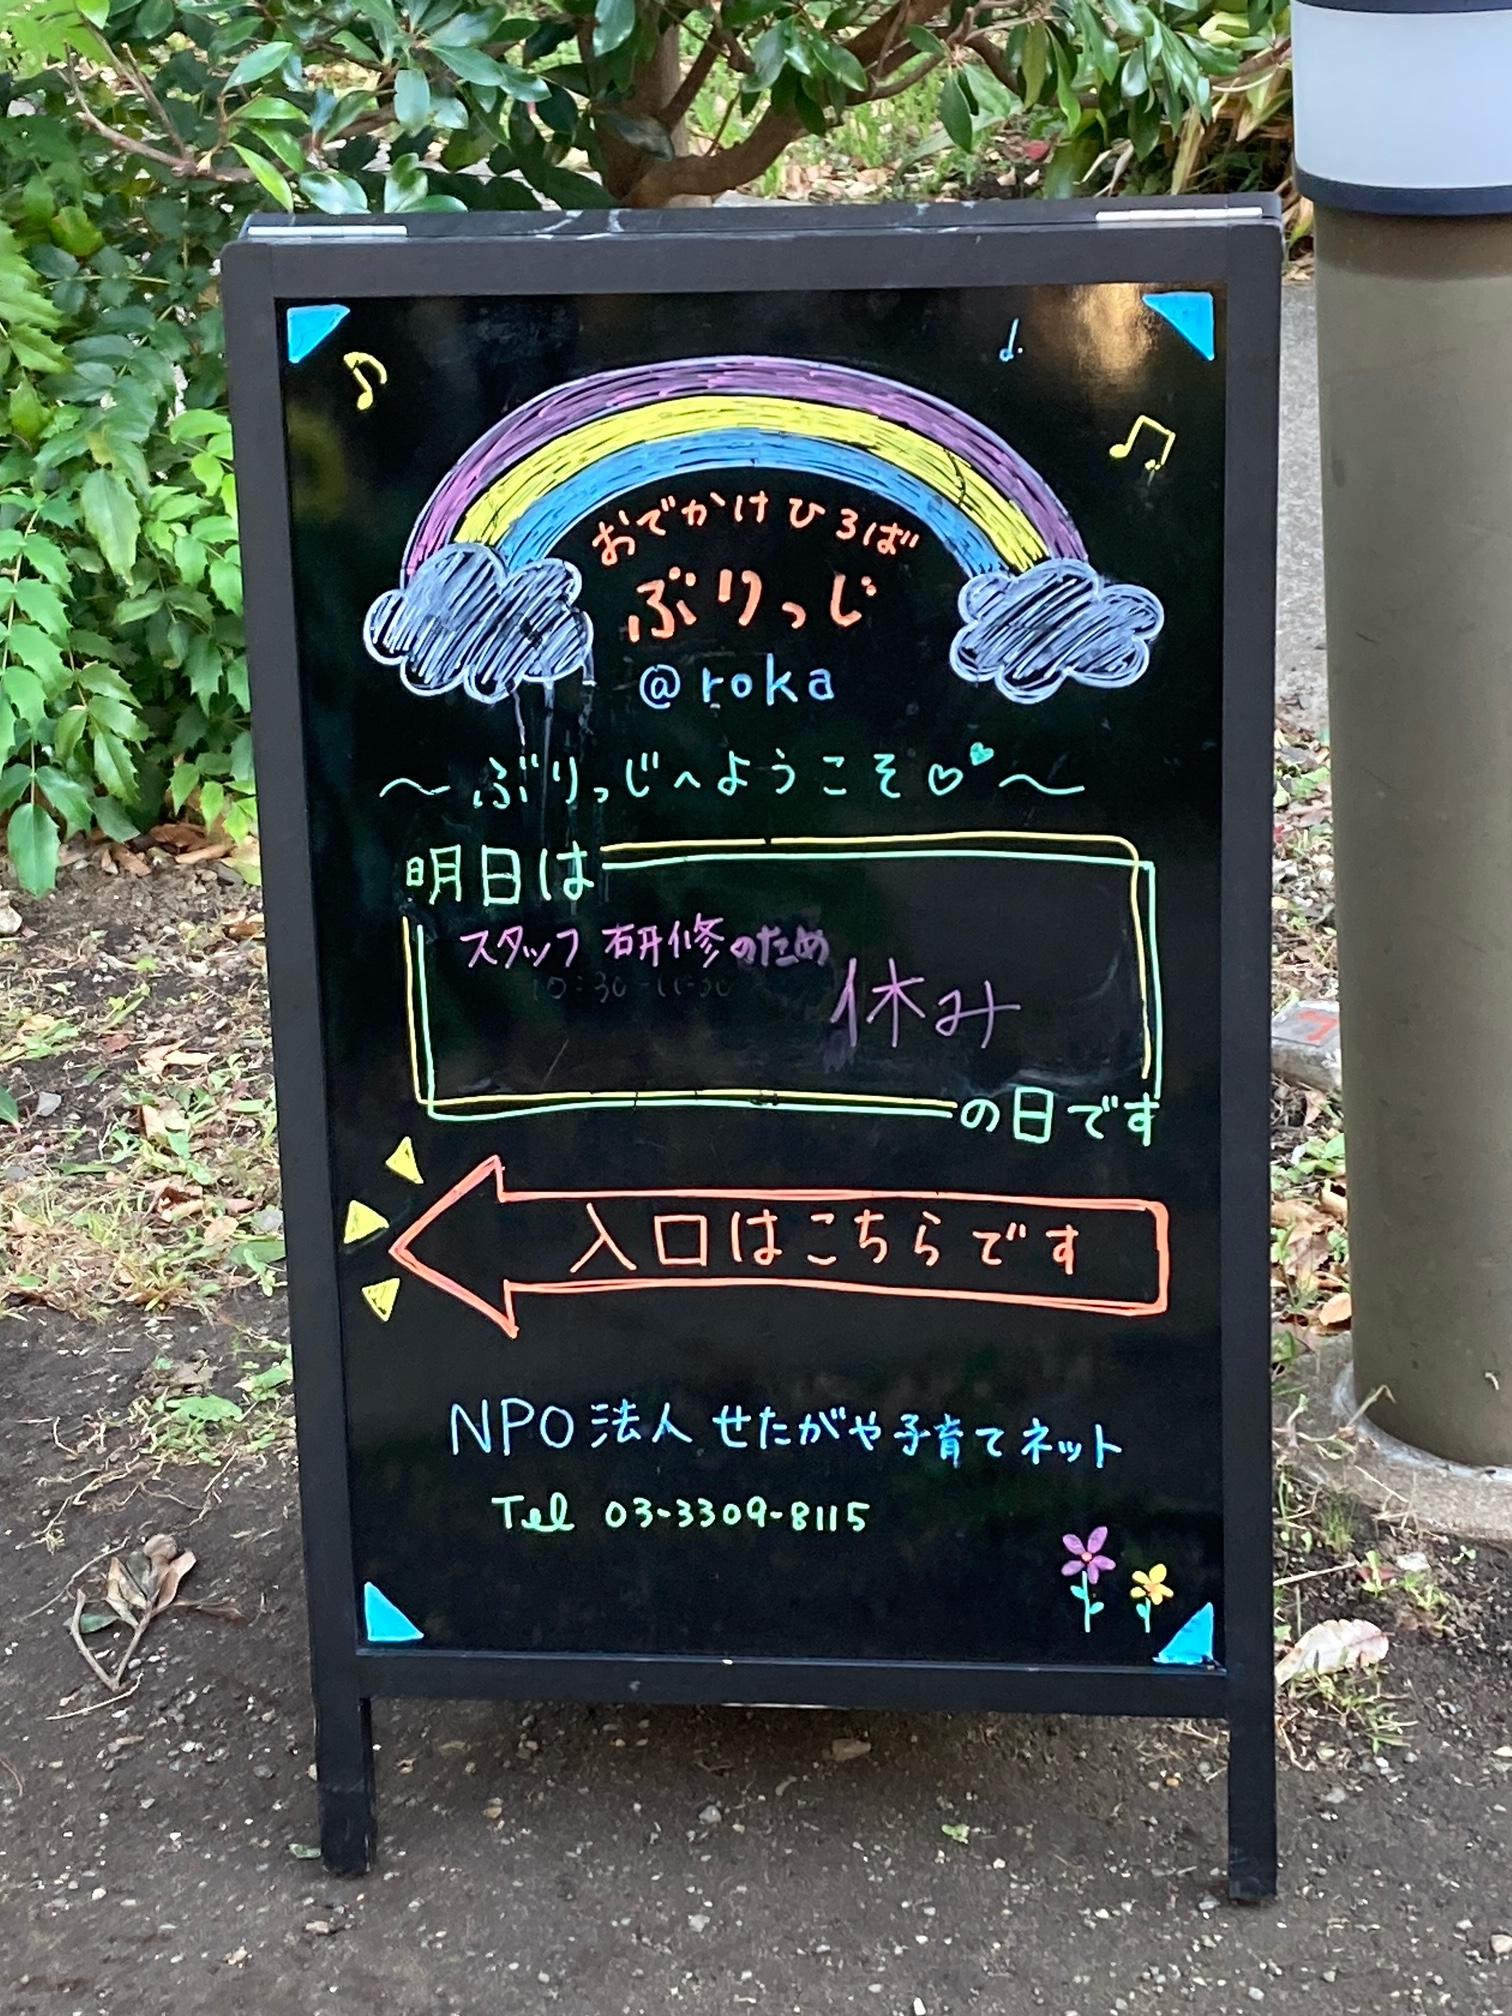 おでかけひろば
ぶりっじ
@roka
～ぶりっじへようこそ♡♥～
明日は
スタッフ 研修のため
休み
の日です
入口はこちらです
NPO法人 せたがや子育てネット
Tel 03-3309-8115